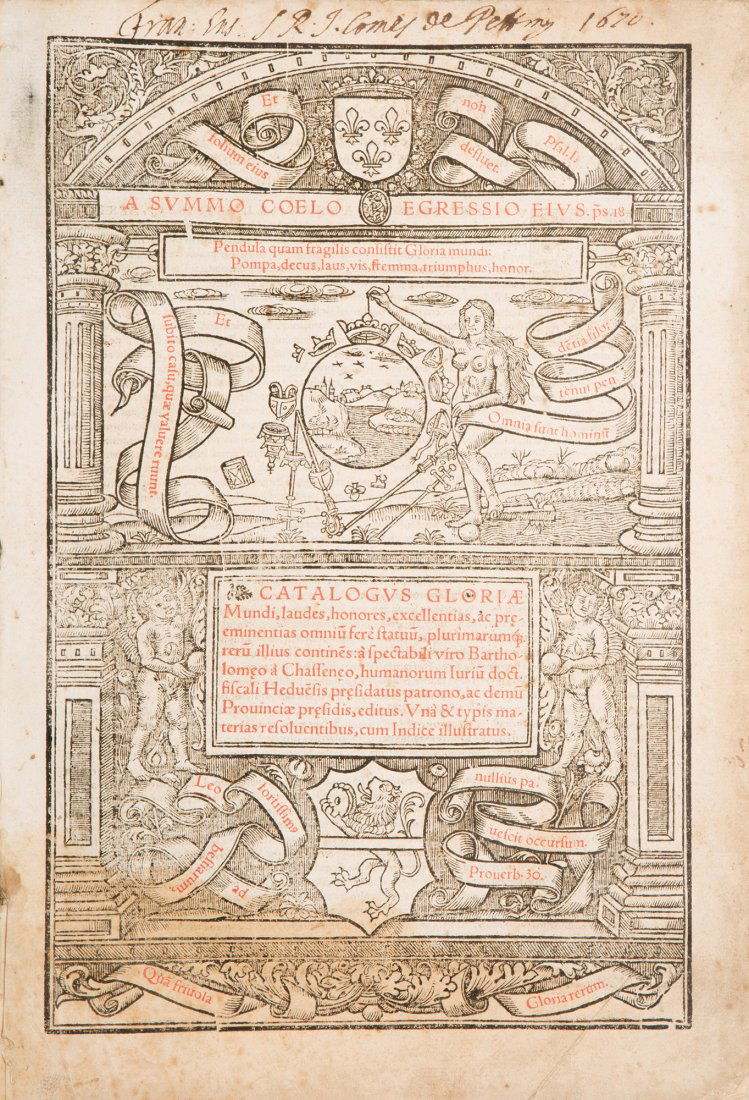 Fran: Ens. S. R. J. Comes de 1670.
Et
folium eius
non
defluet.
Psal. i.
A SVMMO COELO EGRESSIO EIVS. p̃s. 18.
Pendula quam fragilis consistit Gloria mundi:
Pompa, decus, laus, vis, stemma, triumphus, honor.
Et
subito casu, quæ valuere ruunt.
Omnia sunt hominũ
tenui pen
dẽtia filo:
CATALOGVS GLORIÆ
Mundi, laudes, honores, excellentias, ac prę
eminentias omniũ ferè statuũ, plurimarumq;
rerũ illius continẽs: à spectabili viro Bartho
lomęo à Chassenęo, humanorum Iuriũ doct.
fiscali Heduẽsis pręsidatus patrono, ac demũ
Prouinciæ pręsidis, editus. Vnà & typis ma-
terias resoluentibus, cum Indice illustratus.
Leo
fortissimꝰ
bestiarum,
ad
nullius pa-
uescit occursum.
Prouerb. 30.
Quã friuola
Gloria rerum.